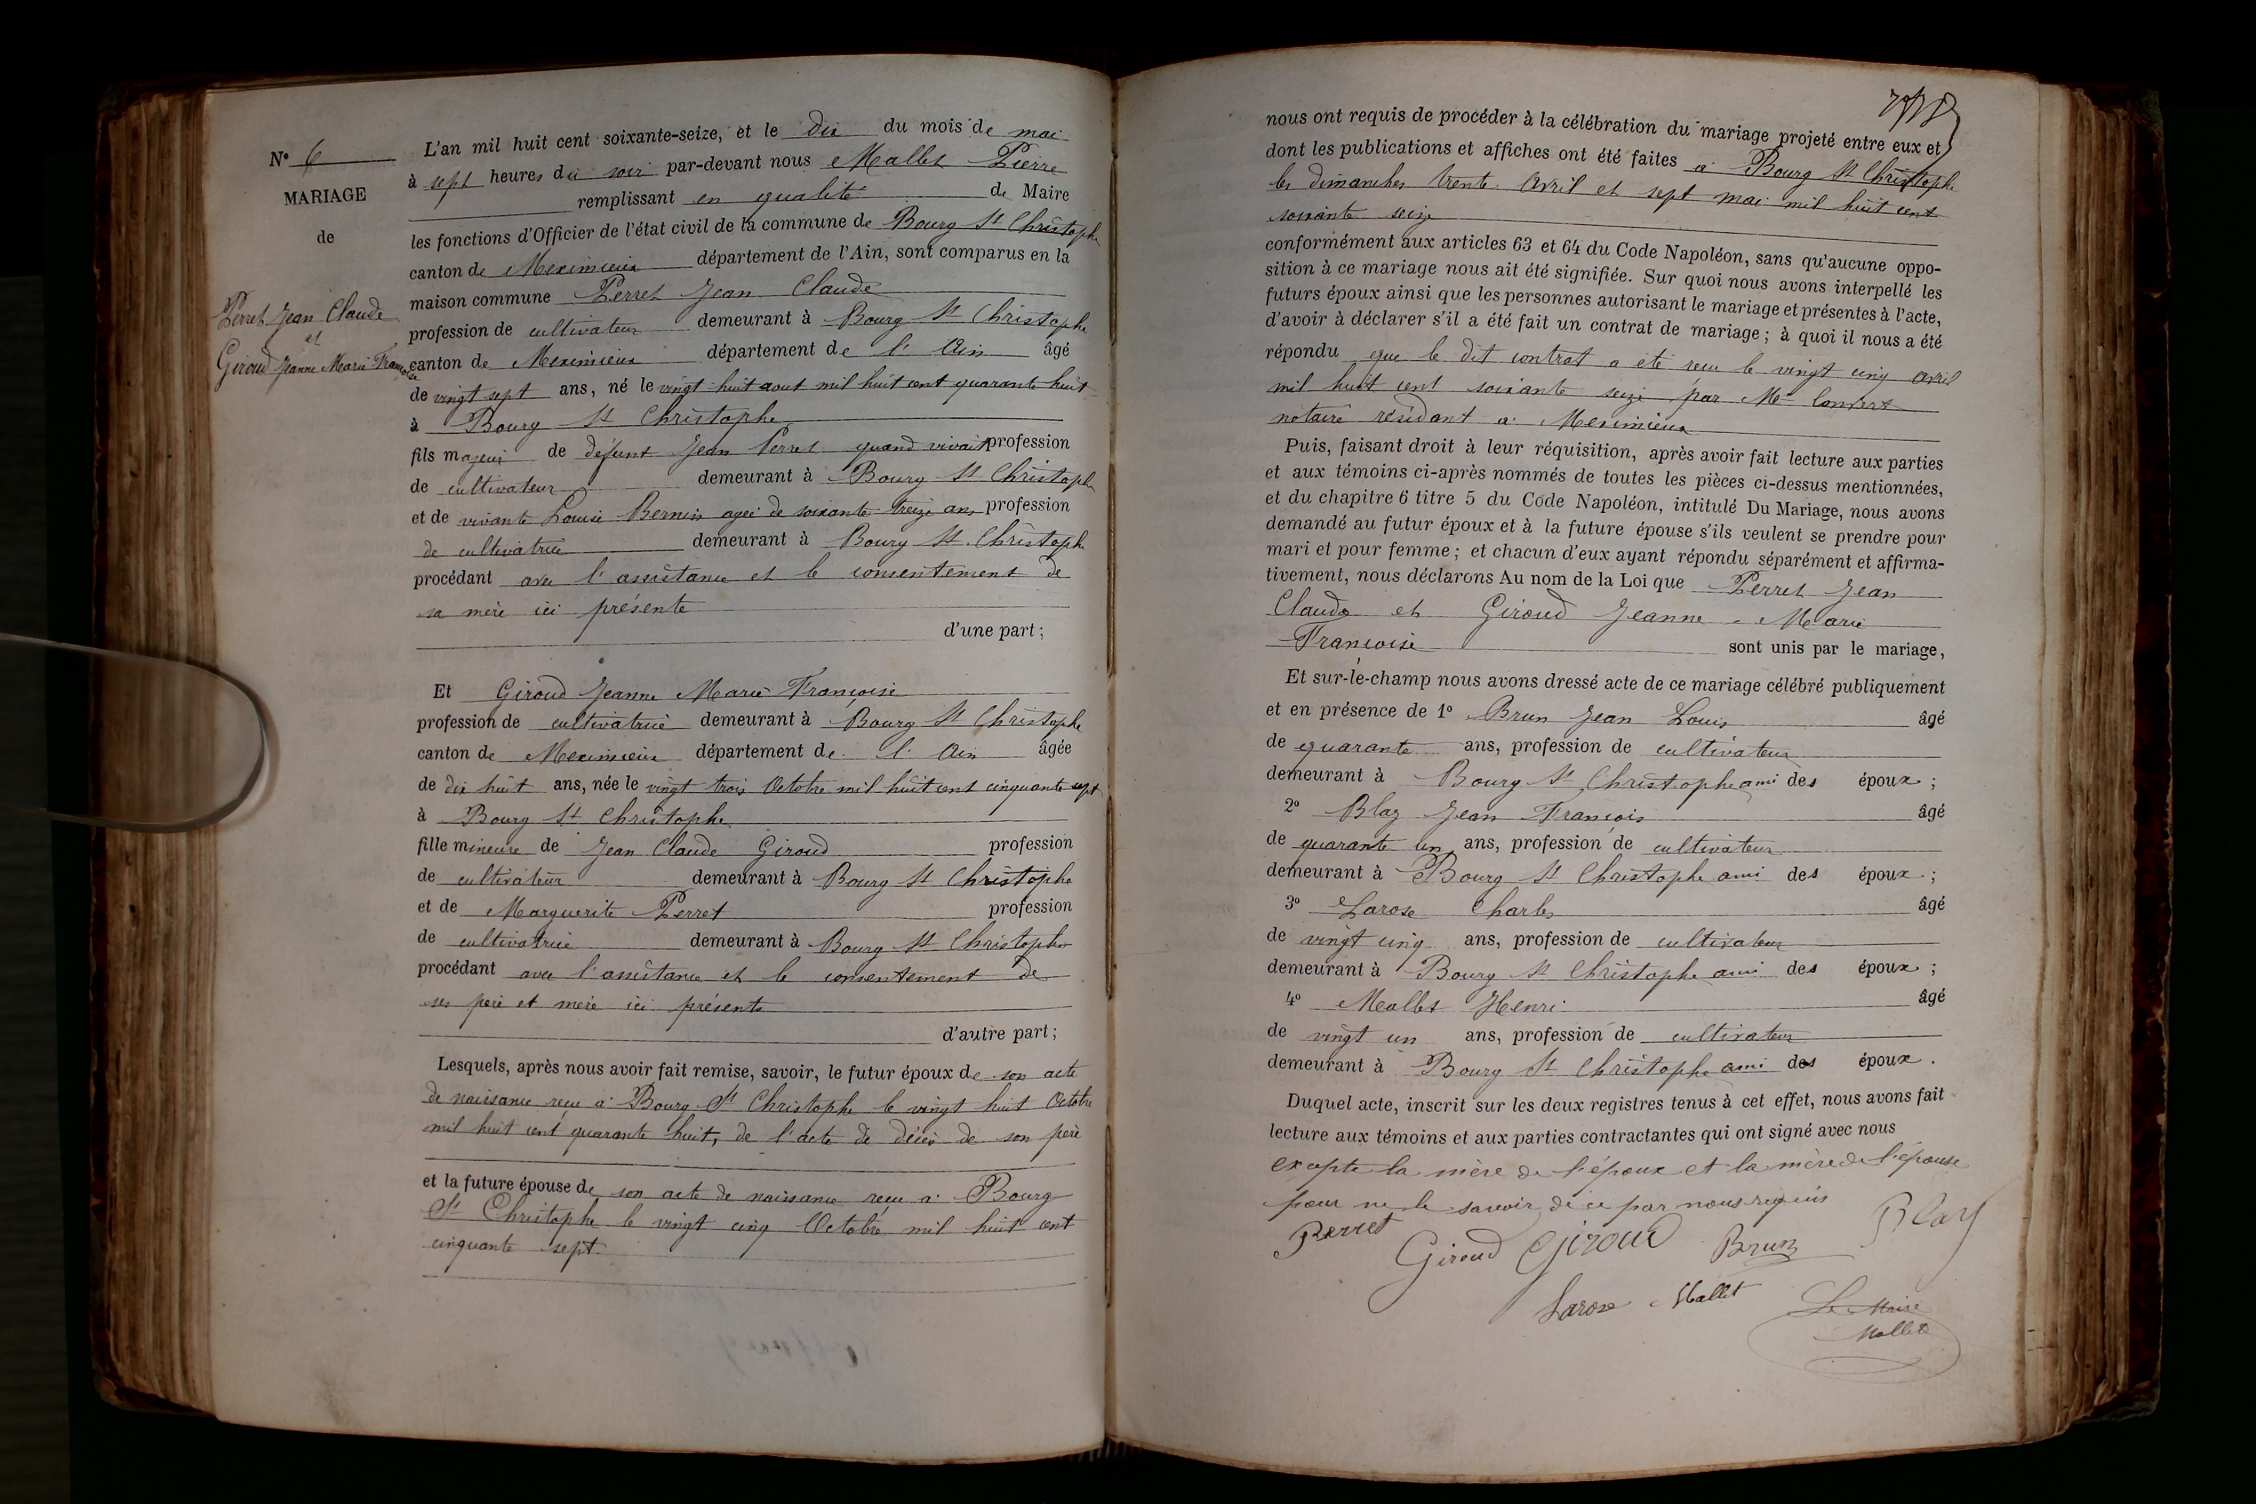 N° 6
MARIAGE
de
Perret Jean Claude
et
Giroud Jeanne Marie Françoise
L'an mil huit cent soixante-seize, et le dix du mois de mai
à sept heures du soir par-devant nous Mallet Pierre
remplissant en qualité de Maire
les fonctions d'Officier de l'état civil de la commune de Bourg St Christophe
canton de Meximieux département de l'Ain, sont comparus en la
maison commune Perret Jean Claude
profession de cultivateur demeurant à Bourg St Christophe
canton de Meximieux département de l'Ain âgé
de vingt sept ans, né le vingt huit aout mil huit cent quarante huit
à Bourg St Christophe
fils majeur de défunt Jean Perret quand vivait profession
de cultivateur demeurant à Bourg St Christophe
et de vivante Louise Bernin agée de soixante treize ans profession
de cultivatrice demeurant à Bourg St Christophe
procédant avec l'assistance et le consentement de
sa mère ici présente
d'une part ;
Et Giroud Jeanne Marie Françoise
profession de cultivatrice demeurant à Bourg St Christophe
canton de Meximieux département de l'Ain âgée
de dix huit ans, née le vingt trois Octobre mil huit cent cinquante sept
à Bourg St Christophe
fille mineure de Jean Claude Giroud profession
de cultivateur demeurant à Bourg St Christophe
et de Marguerite Perret profession
de cultivatrice demeurant à Bourg St Christophe
procédant avec l'assistance et le consentement de
ses père et mère ici présents
d'autre part ;
Lesquels, après nous avoir fait remise, savoir, le futur époux de son acte
de naissance reçu à Bourg St Christophe le vingt huit Octobre
mil huit cent quarante huit, de l'acte de décès de son père
et la future épouse de son acte de naissance reçu à Bourg
St Christophe le vingt cinq Octobre mil huit cent
cinquante sept
nous ont requis de procéder à la célébration du mariage projeté entre eux et
dont les publications et affiches ont été faites à Bourg St Christophe
les dimanches trente Avril et sept mai mil huit cent
soixante seize
conformément aux articles 63 et 64 du Code Napoléon, sans qu'aucune oppo-
sition à ce mariage nous ait été signifiée. Sur quoi nous avons interpellé les
futurs époux ainsi que les personnes autorisant le mariage et présentes à l'acte,
d'avoir à déclarer s'il a été fait un contrat de mariage ; à quoi il nous a été
répondu que le dit contrat a été reçu le vingt cinq avril
mil huit cent soixante seize par Me Convert
notaire résidant à Meximieux
Puis, faisant droit à leur réquisition, après avoir fait lecture aux parties
et aux témoins ci-après nommés de toutes les pièces ci-dessus mentionnées,
et du chapitre 6 titre 5 du Code Napoléon, intitulé Du Mariage, nous avons
demandé au futur époux et à la future épouse s'ils veulent se prendre pour
mari et pour femme ; et chacun d'eux ayant répondu séparément et affirma-
tivement, nous déclarons Au nom de la Loi que Perret Jean
Claude et Giroud Jeanne - Marie
Françoise sont unis par le mariage,
Et sur-le-champ nous avons dressé acte de ce mariage célébré publiquement
et en présence de 1° Brun Jean Louis âgé
de quarante ans, profession de cultivateur
demeurant à Bourg St Christophe ami des époux ;
2° Blaz Jean François âgé
de quarante un ans, profession de cultivateur
demeurant à Bourg St Christophe ami des époux ;
3° Larose Charles âgé
de vingt cinq ans, profession de cultivateur
demeurant à Bourg St Christophe ami des époux ;
4° Mallet Henri âgé
de vingt un ans, profession de cultivateur
demeurant à Bourg St Christophe ami des époux .
Duquel acte, inscrit sur les deux registres tenus à cet effet, nous avons fait
lecture aux témoins et aux parties contractantes qui ont signé avec nous
excepté la mère de l'époux et la mère de l'épouse
pour ne le savoir de ce par nous requis
Perret Giroud Giroud Brun Blaz
Larose Mallet Le Maire
Mallet